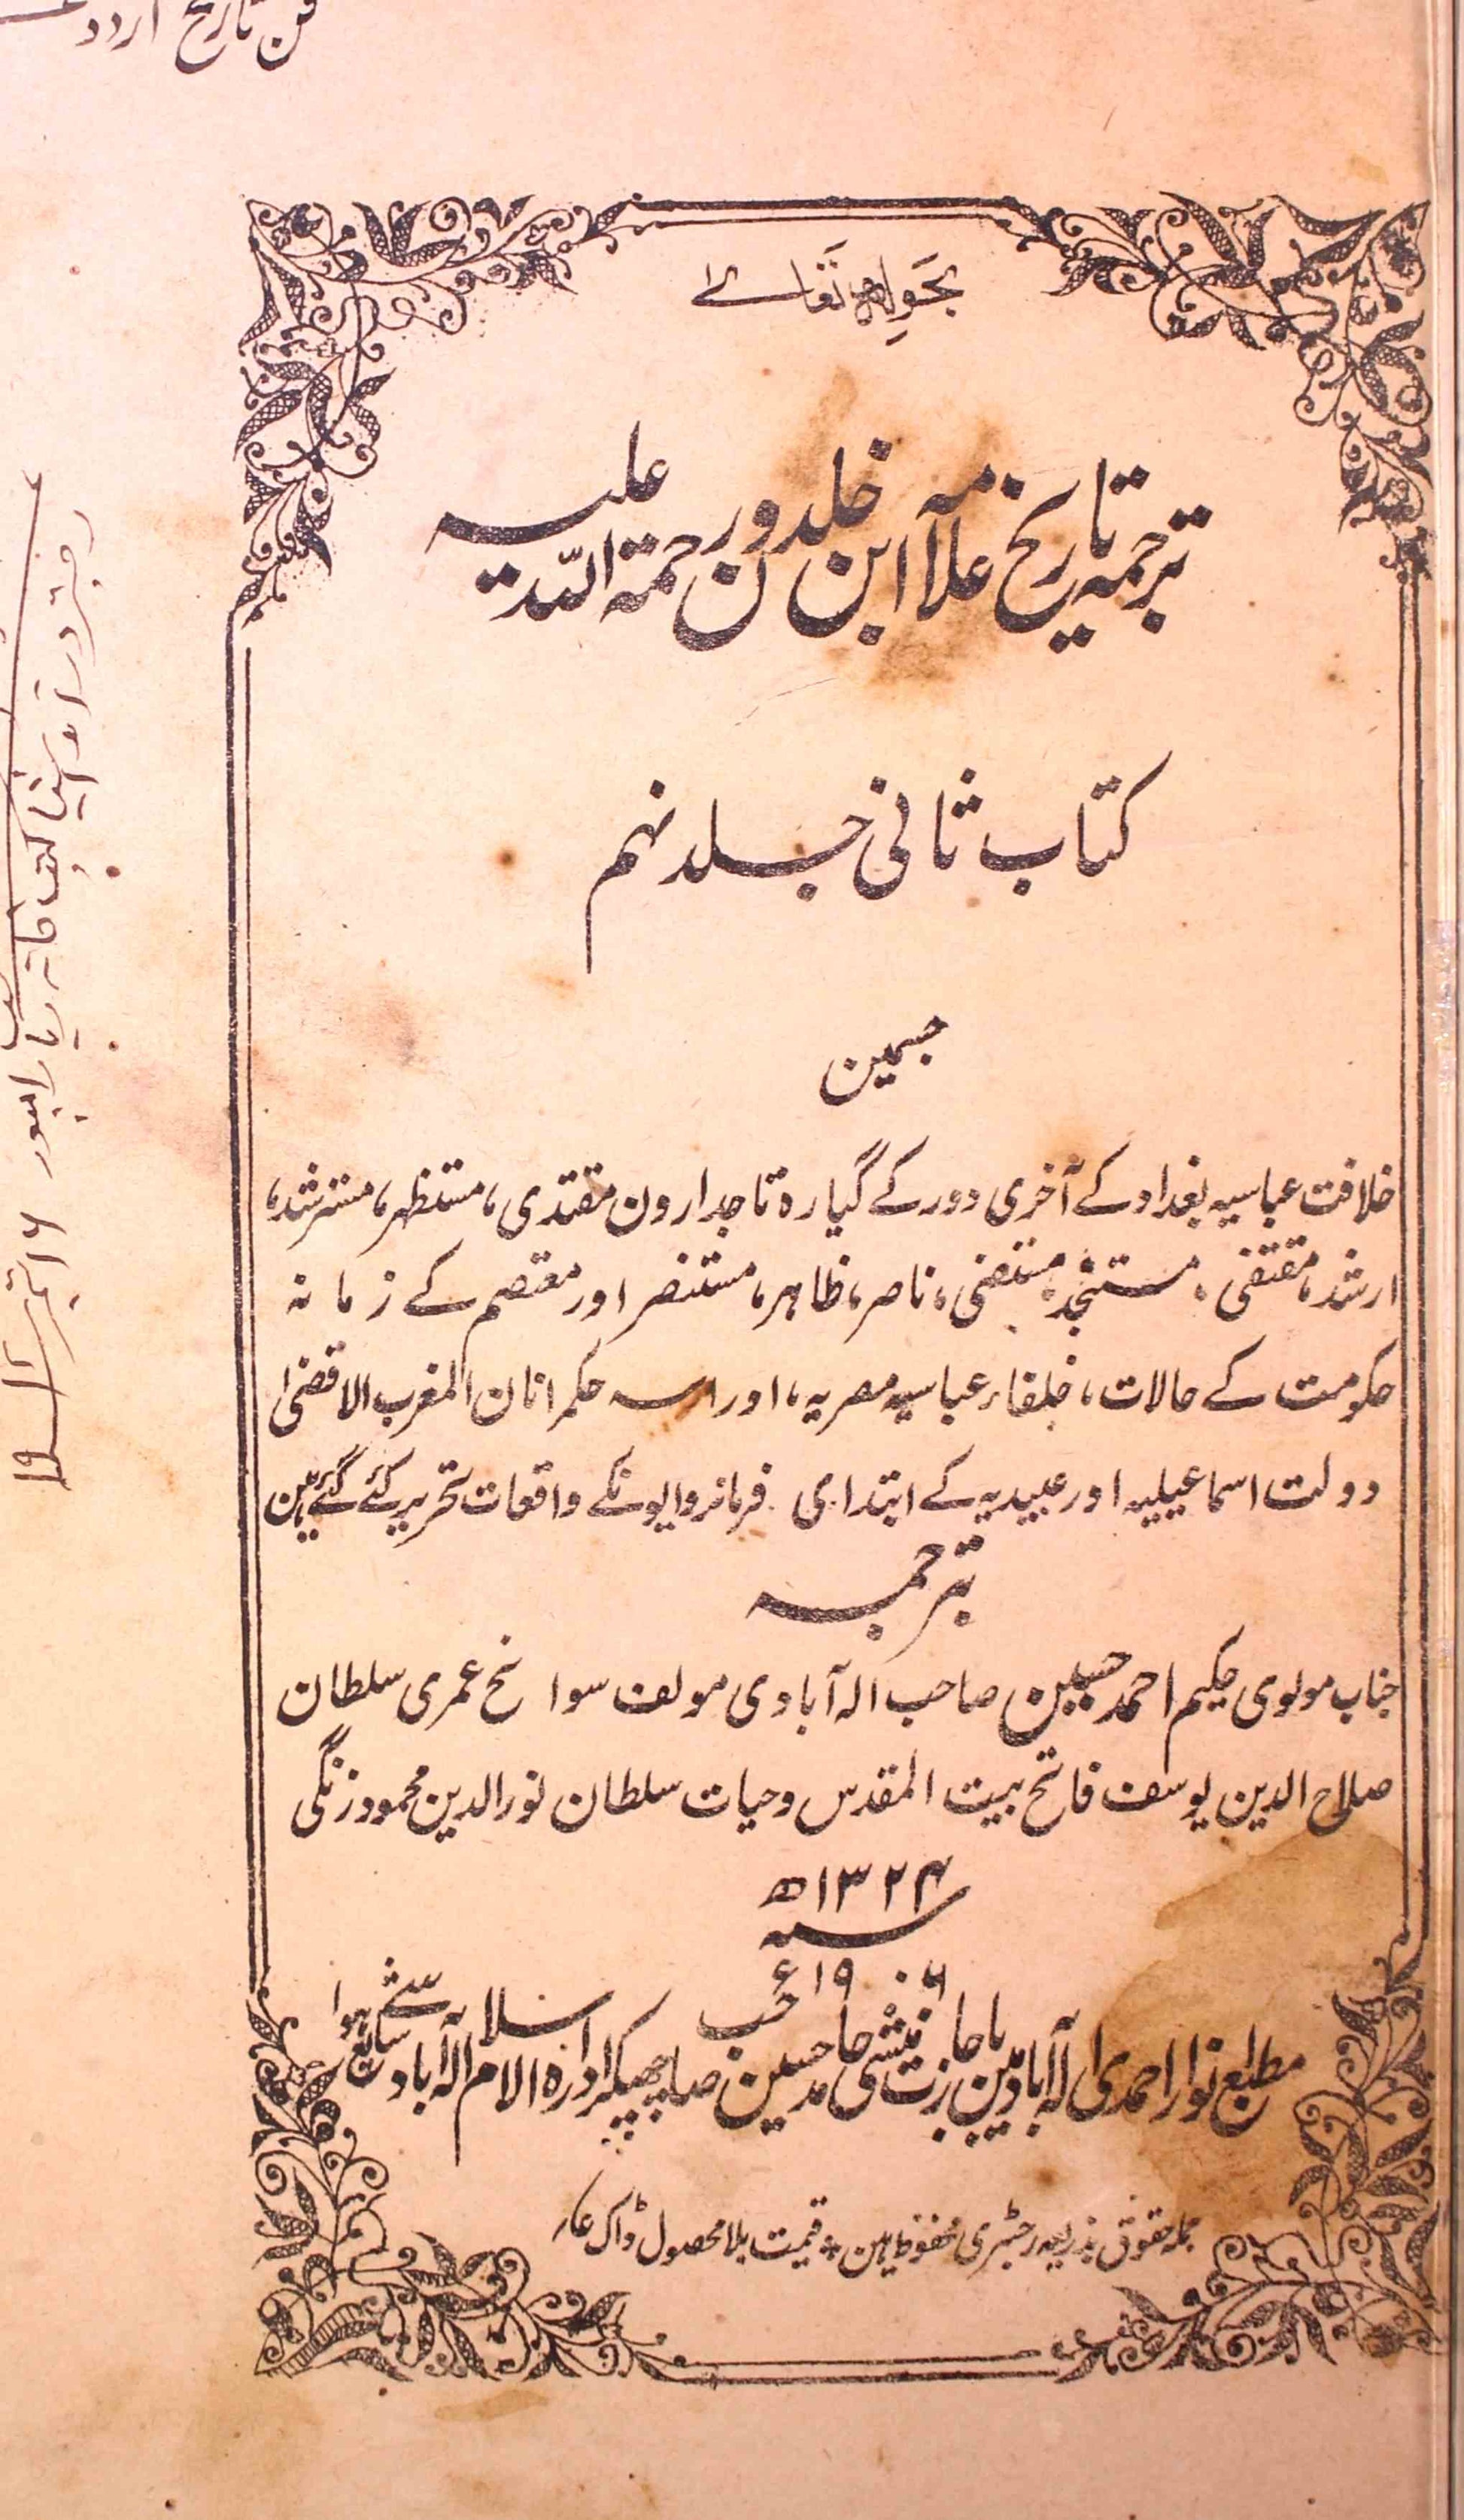 فن تاریخ اردو
بحولہ تعالےٰ
ترجمہ تاریخ علامہ ابن خلدون رحمۃ اللہ علیہ
کتاب ثانی جلد نہم
جسمین
خلافت عباسیہ بغداد کے آخری دور کے گیارہ تاجدارون مقتدی، مستظہر، مسترشد،
ارشد، مقتفی، مستنجد، مستضی، ناصر، ظاہر، مستنصر اور معتصم کے زمانہ
حکومت کے حالات، خلفاء عباسیہ مصریہ، ادارسہ حکمرانان المغرب الاقضیٰ
دولت اسماعیلیہ اور عبیدیہ کے ابتدای فرمانروایونکے واقعات تحریر کئے گئے ہین
ترجمہ
جناب مولوی حکیم احمد حسین صاحب الہ آبادی مولف سوانح عمری سلطان
صلاح الدین یوسف فاتح بیت المقدس وحیات سلطان نورالدین محمود زنگی
سنہ ۱۳۲۴ھ
۱۹۰۶ع
مطبع انوار احمدی الہ آباد مین باجازت منشی حامد حسین صاحب چھپکر ادارہ الاسلام الہ آباد سے شائع ہوا
جملہ حقوق بذریعہ رجسٹری محفوظ ہین * قیمت بلا محصول ڈاک